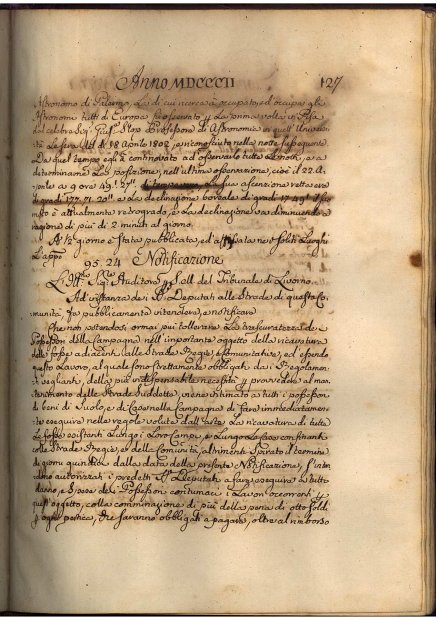 Anno MDCCCII 127
Astronomo di Palermo, La di cui ricerca à occupato, ed occupa gli
Astronomi tutti di Europa fù osservato p La prima volta in Pisa
dal celebre Sig. Giuse. Slop Professore di Astronomia in quell' Univer
La sera del dì 18 Aprile 1802, e riconosciuto nella notte susseguente.
Da quel tempo egli à continovato ad osservarlo tutte Le notti, e a
determinarne La posizione, nell'ultima osservazione, cioè il 22 A
prile a 9 ore 49.' 27." La sua ascenzione retta era
di gradi 177. 71. 20." e La declinazione boreale di gradi 17 49' il
è attualmente retrogrado, e La declinazione và diminuendo a
ragione di più di 2 minuti al giorno.
A' 12 giorno è stata pubblicata, ed affissata nei soliti Luoghi
L' app.
95. 24 Notificazione
L' Ill. Sig. Auditore, del Tribunale di Livorno.
Ad instanza dei SS. Deputati alle Strade di questa Co
munità, fa pubblicamente intendere, e notificare
Che non potendosi ormai più tollerare La trascuratezza dei
Possessori della Campagna nell' importante oggetto della ricavatura
delle fosse adiacenti alle Strade Regie, e Comunitative, ed essendo
questo Lavoro, al quale sono strettamente obbligati da i Regolamen
ti veglianti, della più indispensabile necessità p provvedere al man
tenimento delle Strade Suddette, viene intimato a tutti i possessori
di beni di Suolo, e di Case nella Campagna di fare immediatamen
te eseguire nelle regole volute dall' arte La ricavatura di tutte
Le fosse esistenti Lungo i Loro Campi, e Lungo Le Case confinanti
colle Strade Regie, e della Comunità, altrimenti spirato il termine
di giorni quindici dalla data della presente Notificazione, s' inten
dono autorizzati i predetti SS. Deputati a fare eseguire a tutto
danno, e Spese dei Possessori contumaci i Lavori occorrenti p
quest' oggetto, colla comminazione di più della pena di otto soldi
p ogni pertica, che saranno obbligati a pagare, oltre al rimborso